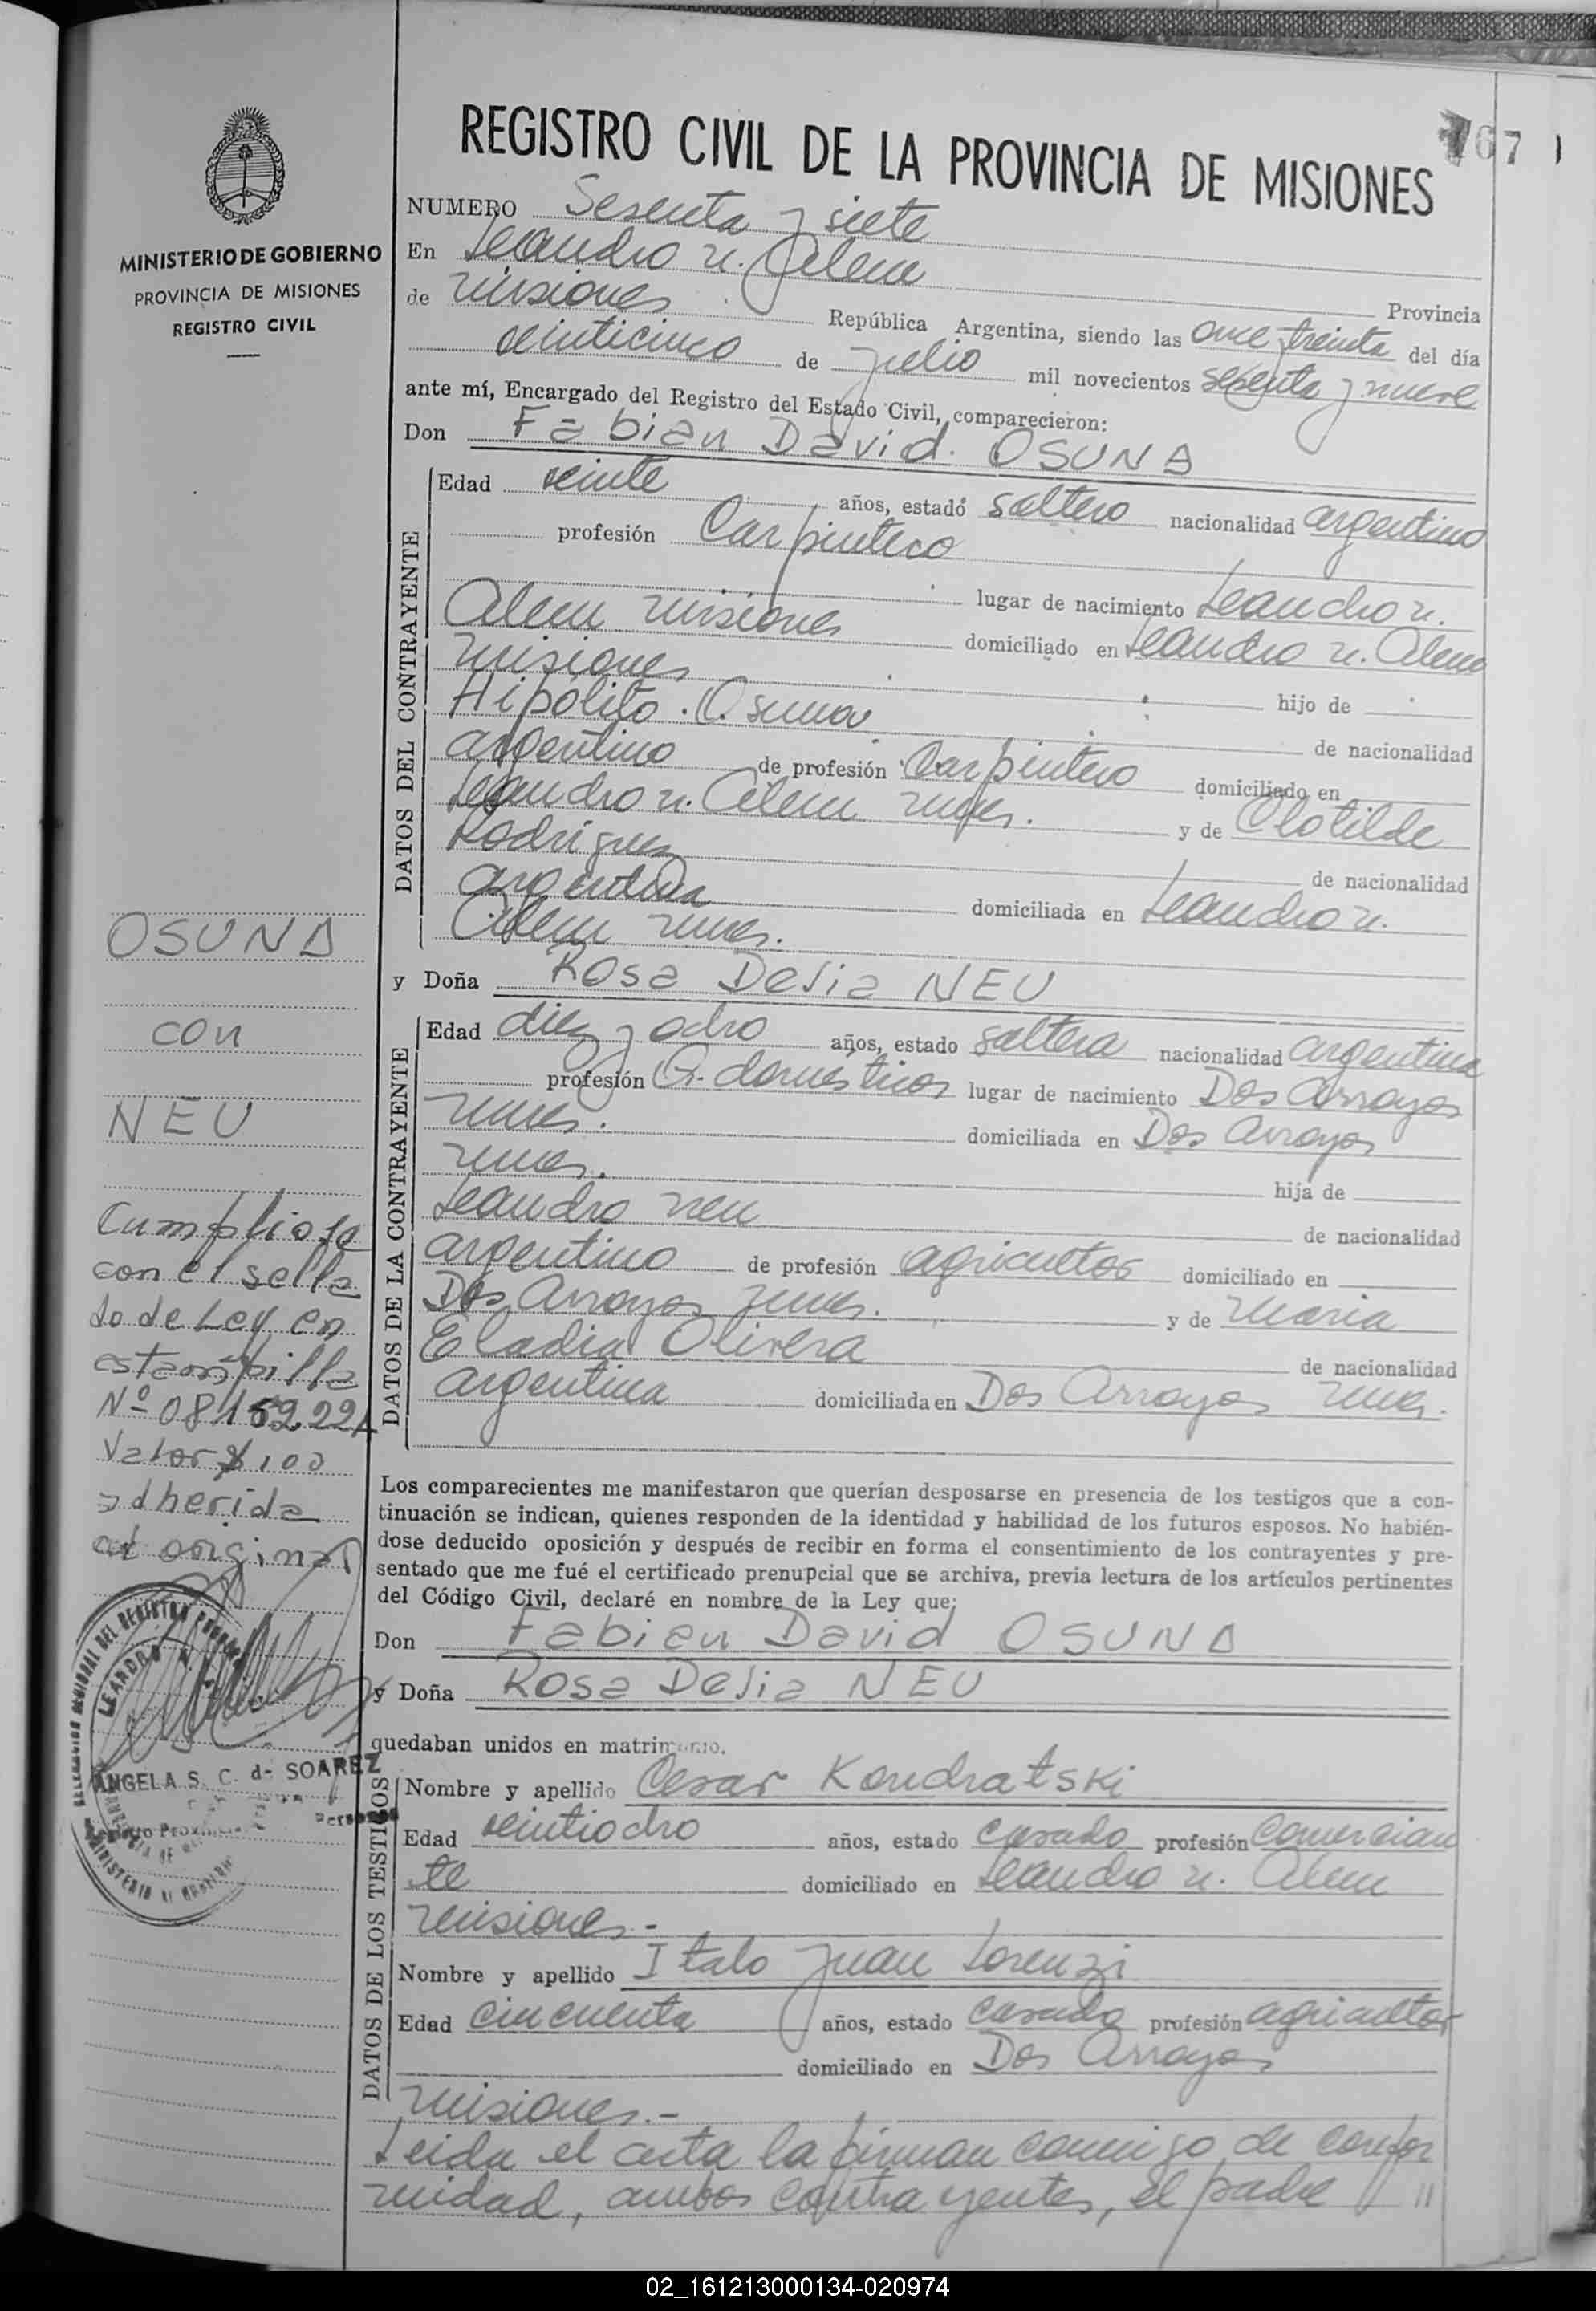 REGISTRO CIVIL DE LA PROVINCIA DE MISIONES
67
MINISTERIO DE GOBIERNO
PROVINCIA DE MISIONES
REGISTRO CIVIL
NUMERO Sesenta y siete
En Leandro N. Alem
Provincia
de Misiones República Argentina, siendo las once treinta del día
veinticinco de julio mil novecientos sesenta y nueve
ante mí, Encargado del Registro del Estado Civil, comparecieron:
Don Fabian David OSUNA
DATOS DEL CONTRAYENTE
Edad veinte años, estado soltero nacionalidad argentino
profesión Carpintero
lugar de nacimiento Leandro N.
Alem Misiones domiciliado en Leandro N. Alem
Misiones hijo de
Hipólito Osuna de nacionalidad
argentino de profesión Carpintero domiciliado en
Leandro N. Alem Mnes. y de Clotilde
Rodriguez de nacionalidad
argentina domiciliada en Leandro N.
Alem Mnes.
y Doña Rosa Delia NEU
DATOS DE LA CONTRAYENTE
Edad diez y ocho años, estado soltera nacionalidad argentina
profesión Q. domésticos lugar de nacimiento Dos Arroyos
Mnes. domiciliada en Dos Arroyos
Mnes. hija de
Leandro Neu de nacionalidad
argentino de profesión agricultor domiciliado en
Dos Arroyos Mnes. y de Maria
Eladia Olivera de nacionalidad
argentina domiciliada en Dos Arroyos Mnes.
OSUNA
con
NEU
Cumpliose
con el sella
do de Ley en
estampilla
Nº
Valor $ 100
adherida
al original
Los comparecientes me manifestaron que querían desposarse en presencia de los testigos que a con-
tinuación se indican, quienes responden de la identidad y habilidad de los futuros esposos. No habién-
dose deducido oposición y después de recibir en forma el consentimiento de los contrayentes y pre-
sentado que me fué el certificado prenupcial que se archiva, previa lectura de los artículos pertinentes
del Código Civil, declaré en nombre de la Ley que:
Don Fabian David OSUNA
y Doña Rosa Delia NEU
quedaban unidos en matrimonio.
ANGELA S. C. de SOAREZ
DATOS DE LOS TESTIGOS
Nombre y apellido Cesar Kondratski
Edad veintiocho años, estado casado profesión Comercian
te domiciliado en Leandro N. Alem
Misiones -
Nombre y apellido Italo Juan Lorenzi
Edad cincuenta años, estado casado profesión agricultor
domiciliado en Dos Arroyos
Misiones.-
Leida el acta la firman conmigo de confor
midad, ambos contrayentes, el padre //
02_161213000134-020974